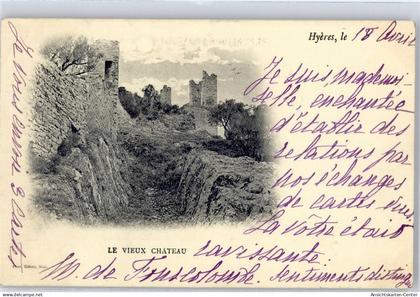 Hyères, le 18 Avril
Je suis mademoi-
selle, enchantée
d'établir des
relations par
nos échanges
de cartes
La vôtre était
ravissante.
LE VIEUX CHÂTEAU
M. de Fonscolombe. Sentiments disting
Je vous envoie 3 cartes
www.ansichtskarten-center.de Ansichtskarten-Center